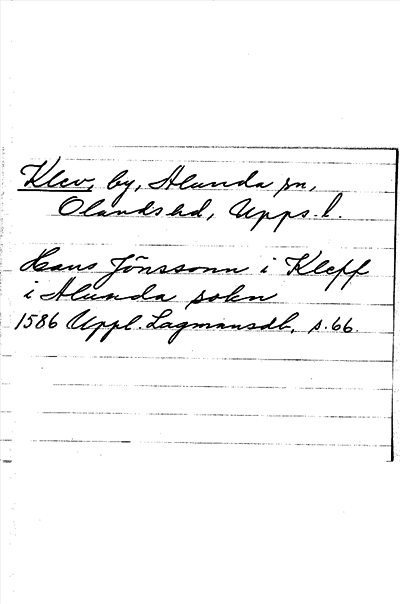 Klev, by, Alunda sn,
Olands hd, Upps. l.
Hans Jönssonn i Kleff
i Alunda sokn
1586 Uppl. Lagmansdb, s. 66.